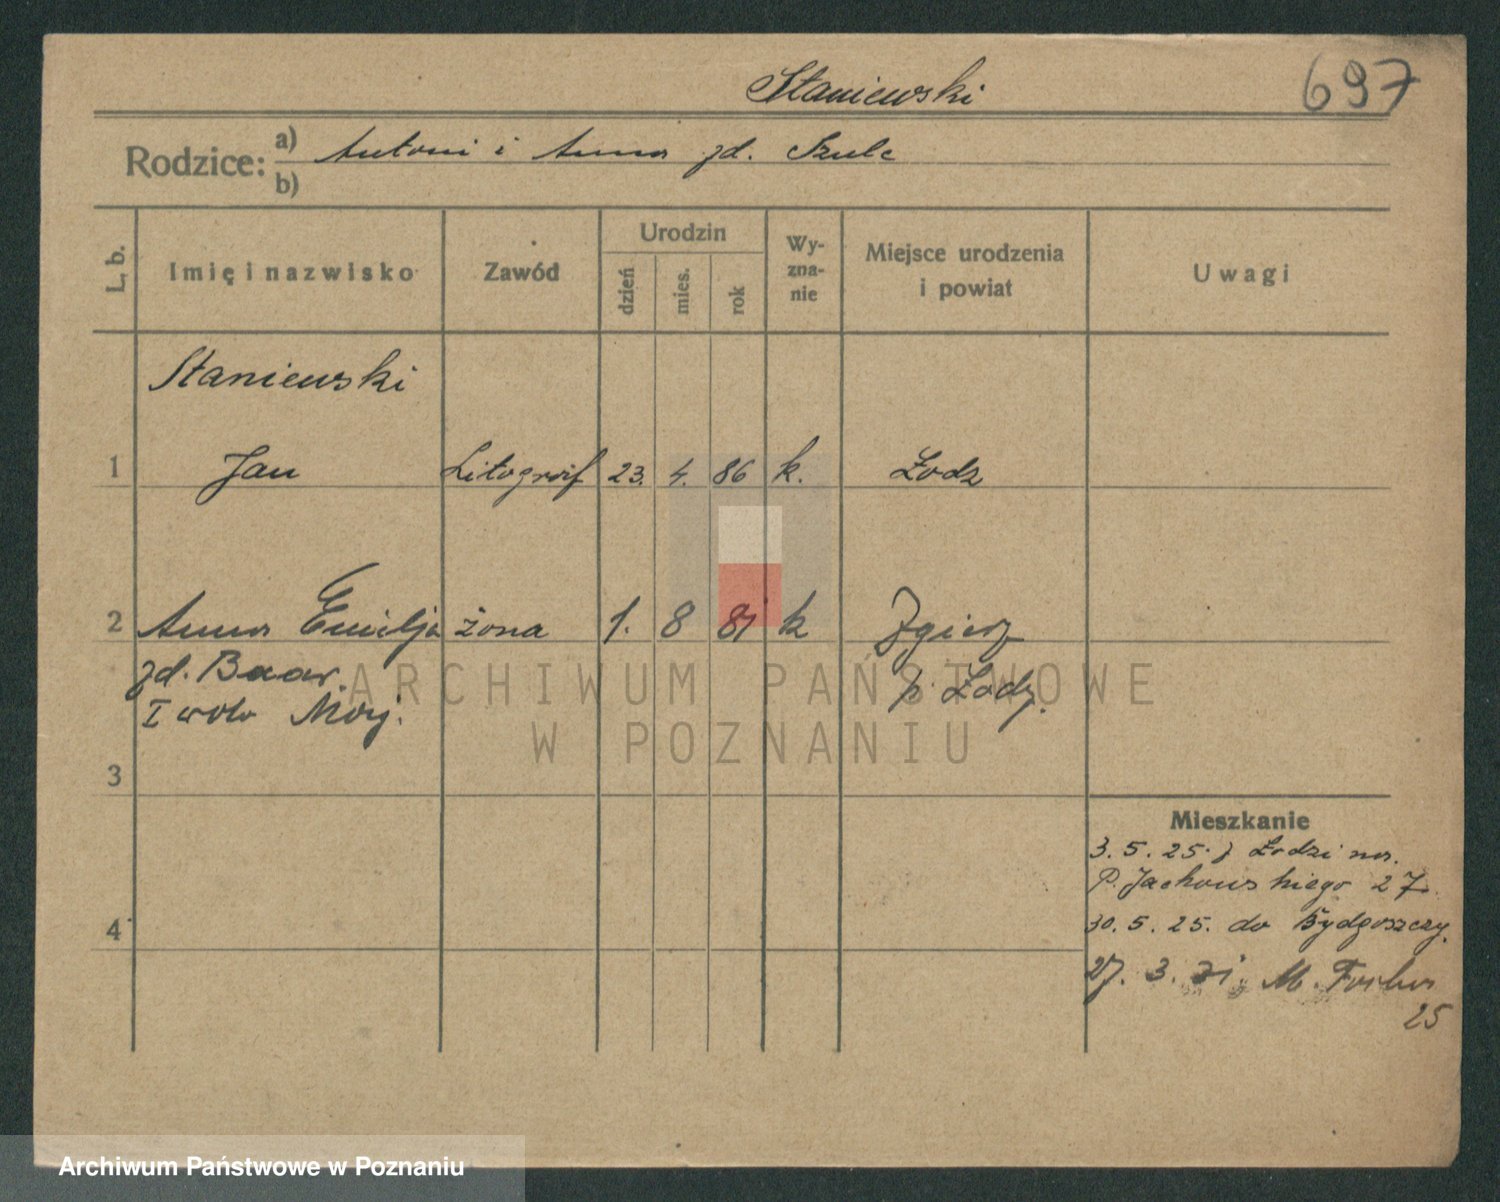 Staniewski
697
Rodzice: a) Antoni i Anna zd. Szulc
b)
L. b.
Imię i nazwisko
Zawód
Urodzin
dzień
mies.
rok
Wy-
zna-
nie
Miejsce urodzenia
i powiat
Uwagi
Staniewski
1 Jan Litograf 23. 4. 86 k. Łodz
2 Anna Emilja żona 1. 8 81 k Zgierz
zd. Baar. p. Łodz.
I voto
3
4
Mieszkanie
3. 5. 25. z Łodzi na.
P. Jackowskiego 27.
30. 5. 25. do Bydgoszczy.
27. 3. 31. M. Focha
25
ARCHIWUM PAŃSTWOWE
W POZNANIU
Archiwum Państwowe w Poznaniu